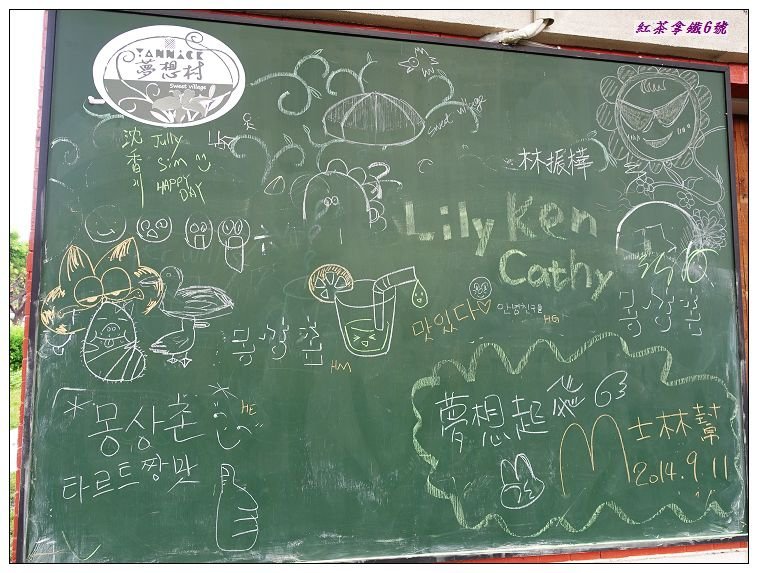 紅茶拿鐵6號
YANNICK
夢想村
Sweet village
沈香
Jully
Sim
HAPPY
DAY
sweet village
林振樺
Lily Ken
Cathy
맛있다♡
안녕친구들
HG
몽상촌
몽상촌
HM
*몽상촌*
HE
타르트짱맛
夢想起飛
M士林幫
2014.9.11